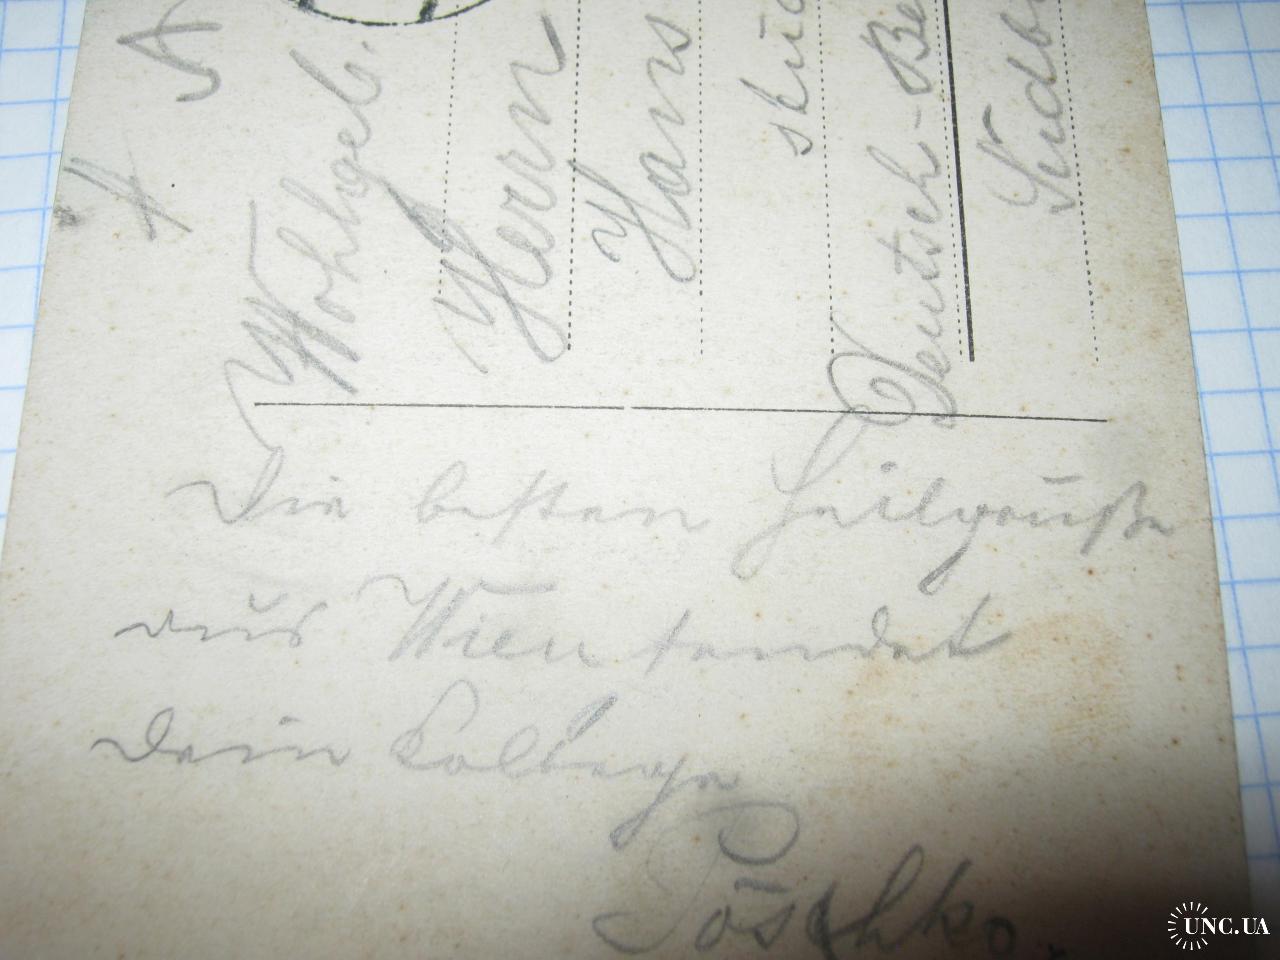 Wohlgeb.
Herrn
Hans
Deutsch-Be
Südb
Die besten Heilgrüße
aus Wien sendet
Dein Kollege
Pöschko.
UNC.UA